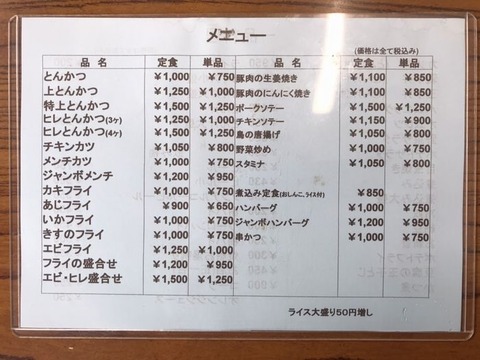 メニュー
(価格は全て税込み)
品 名 定食 単品
とんかつ ¥1,000 ¥750
上とんかつ ¥1,250 ¥1,000
特上とんかつ ¥1,500 ¥1,250
ヒレとんかつ(3ヶ) ¥1,250 ¥1,000
ヒレとんかつ(4ヶ) ¥1,500 ¥1,250
チキンカツ ¥1,050 ¥800
メンチカツ ¥1,000 ¥750
ジャンボメンチ ¥1,200 ¥950
カキフライ ¥1,000 ¥750
あじフライ ¥900 ¥650
いかフライ ¥1,000 ¥750
きすのフライ ¥1,000 ¥750
エビフライ ¥1,250 ¥1,000
フライの盛合せ ¥1,200 ¥950
エビ・ヒレ盛合せ ¥1,500 ¥1,250
品 名 定食 単品
豚肉の生姜焼き ¥1,100 ¥850
豚肉のにんにく焼き ¥1,100 ¥850
ポークソテー ¥1,500 ¥1,250
チキンソテー ¥1,150 ¥900
鳥の唐揚げ ¥1,050 ¥800
野菜炒め ¥1,000 ¥750
スタミナ ¥1,050 ¥800
煮込み定食(おしんこ、ライス付) ¥850
ハンバーグ ¥1,000 ¥750
ジャンボハンバーグ ¥1,200 ¥950
串かつ ¥1,000 ¥750
ライス大盛り50円増し